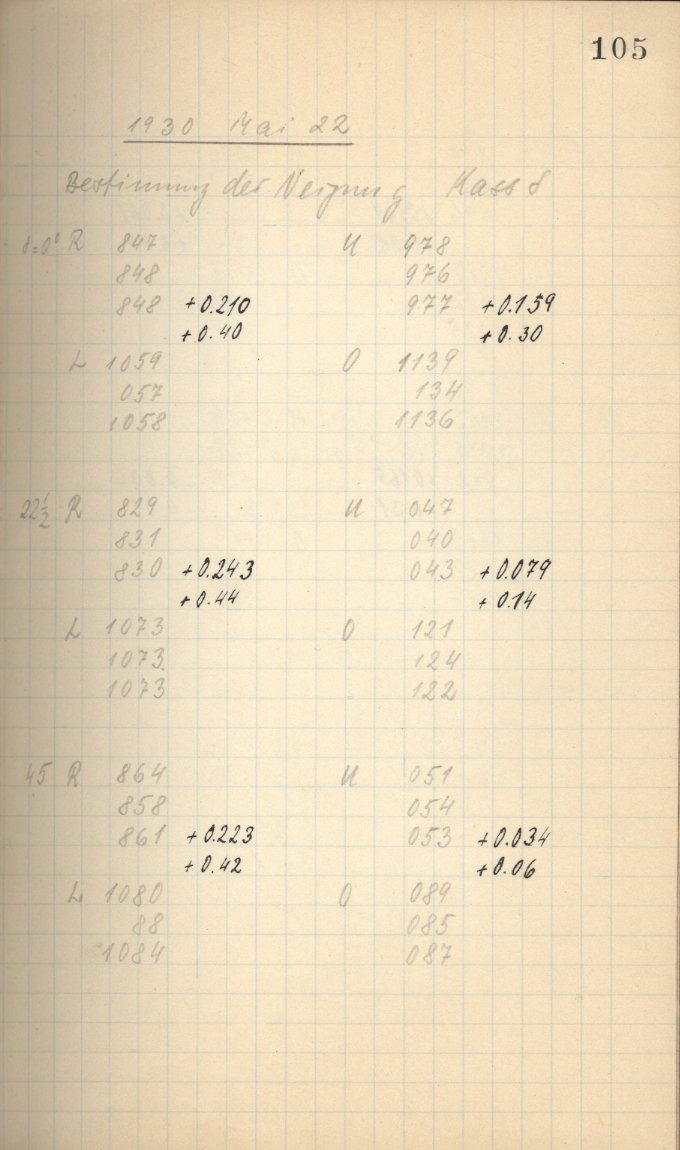 105
1930 Mai 22
Bestimmung der Neigung Kass δ
δ=0° R 847 U 978
848 976
848 +0.210 977 +0.159
+0.40 +0.30
L 1059 O 1139
057 134
1058 1136
22½ R 829 U 047
831 040
830 +0.243 043 +0.079
+0.44 +0.14
L 1073 O 121
1073 124
1073 122
45 R 864 U 051
858 054
861 +0.223 053 +0.034
+0.42 +0.06
L 1080 O 089
88 085
1084 087